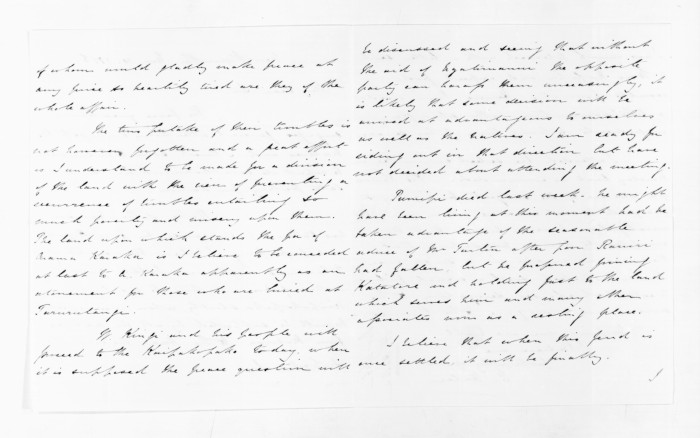 of whom would gladly make peace at
any price so heartily tired are they of the
whole affair.
The true of their troubles is
not however forgotten and a great effort
is I understand to be made for a division
of the land with the view of preventing a
recurrence of troubles entailing so
much poverty and misery upon them.
The land upon which stands the pa of
Karaka is I believe to be conceded
at last to Te Karaka apparently as an
atonement for those who are buried at
W. Kingi and his people will
proceed to the Kaipakopako today, when
it is supposed the peace question will
be discussed and seeing that without
the aid of the opposite
party can harass them unceasingly, it
is likely that some decision will be
arrived at advantageous to ourselves
as well as the natives. I am ready for
riding out in that direction but have
not decided about attending the meeting.
died last week. he might
have been living at this moment had he
taken advantage of the seasonable
advice of Mr Turton after poor Rawiri
had fallen. but he preferred joining
Katatore and holding fast to the land
which serves him and many other
now as a resting place.
I believe that when this feud is
once settled it will be finally.